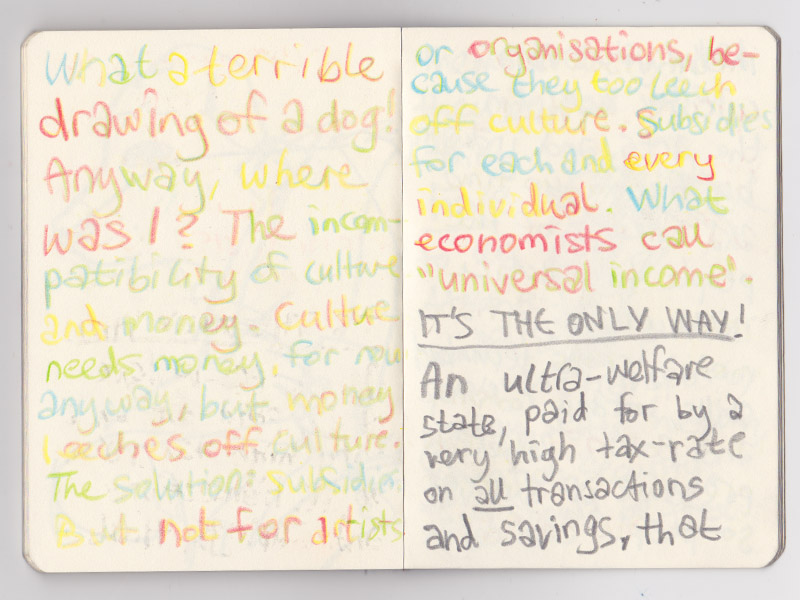 What a terrible
drawing of a dog!
Anyway, where
was I? The incom-
patibility of culture
and money. Culture
needs money, for now
anyway, but money
leeches off culture.
The solution: subsidies.
But not for artists
or organisations, be-
cause they too leech
off culture. Subsidies
for each and every
individual. What
economists call
"universal income".
IT'S THE ONLY WAY!
An ultra-welfare
state, paid for by a
very high tax-rate
on all transactions
and savings, that